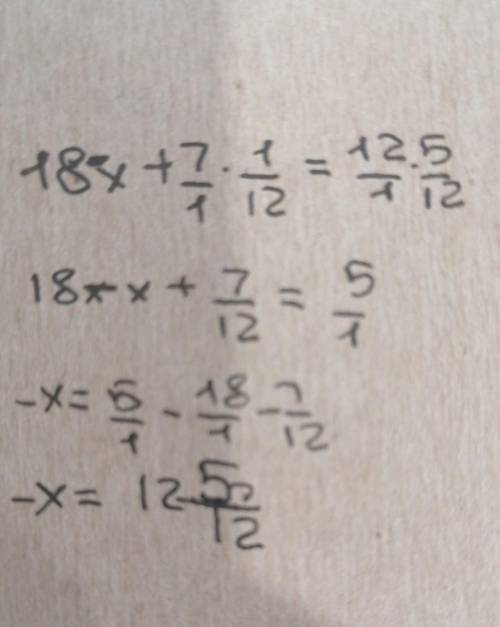 18-x + 7/1 · 1/12 = 12/1 · 5/12
18-x + 7/12 = 5/1
-x = 5/1 - 18/1 - 7/12
-x = 12 5/12